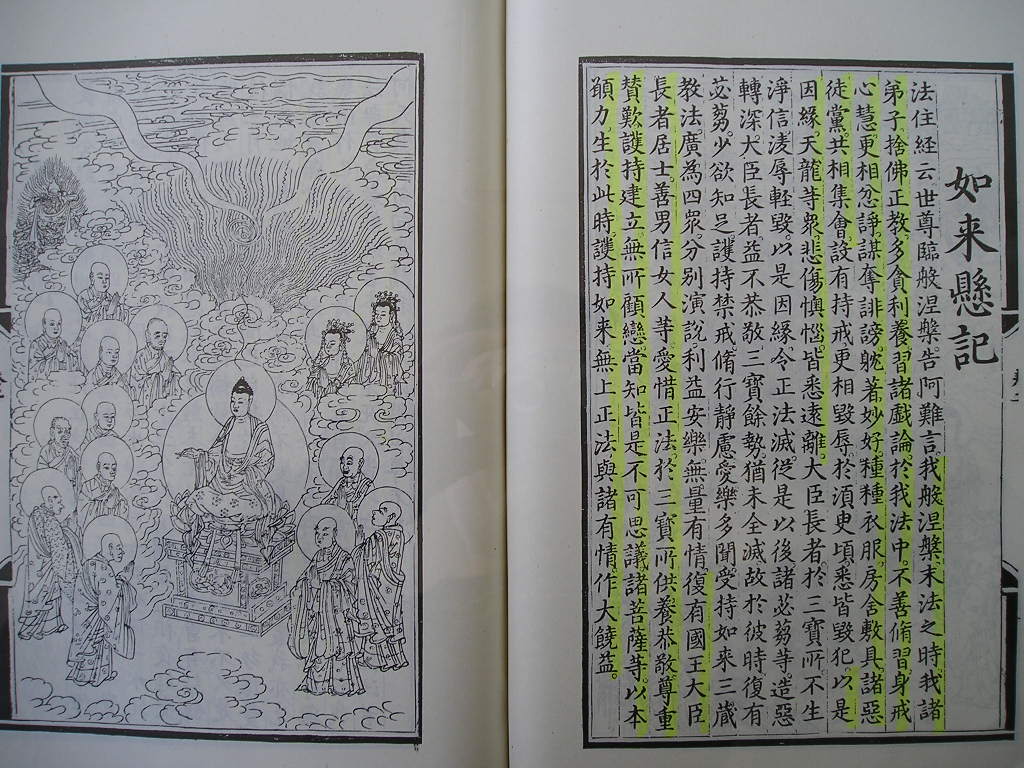 如来懸記
法住経云世尊臨般涅槃告阿難言我般涅槃末法之時我諸
弟子捨佛正教多貪利養習諸戲論於我法中不善脩習身戒
心慧更相忿諍謀奪誹謗躭著妙好種種衣服房舍敷具諸惡
徒黨共相集會設有持戒更相毀辱於須臾頃悉皆毀犯以是
因緣天龍等衆悲傷懊惱皆悉遠離大臣長者於三寶所不生
淨信淩辱輕毀以是因緣令正法滅從是以後諸苾芻等造惡
轉深大臣長者益不恭敬三寶餘勢猶未全滅故於彼時復有
苾芻少欲知足護持禁戒脩行靜慮愛樂多聞受持如來三藏
教法廣為四衆分別演說利益安樂無量有情復有國王大臣
長者居士善男信女人等愛惜正法於三寶所供養恭敬尊重
賛歎護持建立無所顧戀當知皆是不可思議諸菩薩等以本
願力生於此時護持如来無上正法與諸有情作大饒益